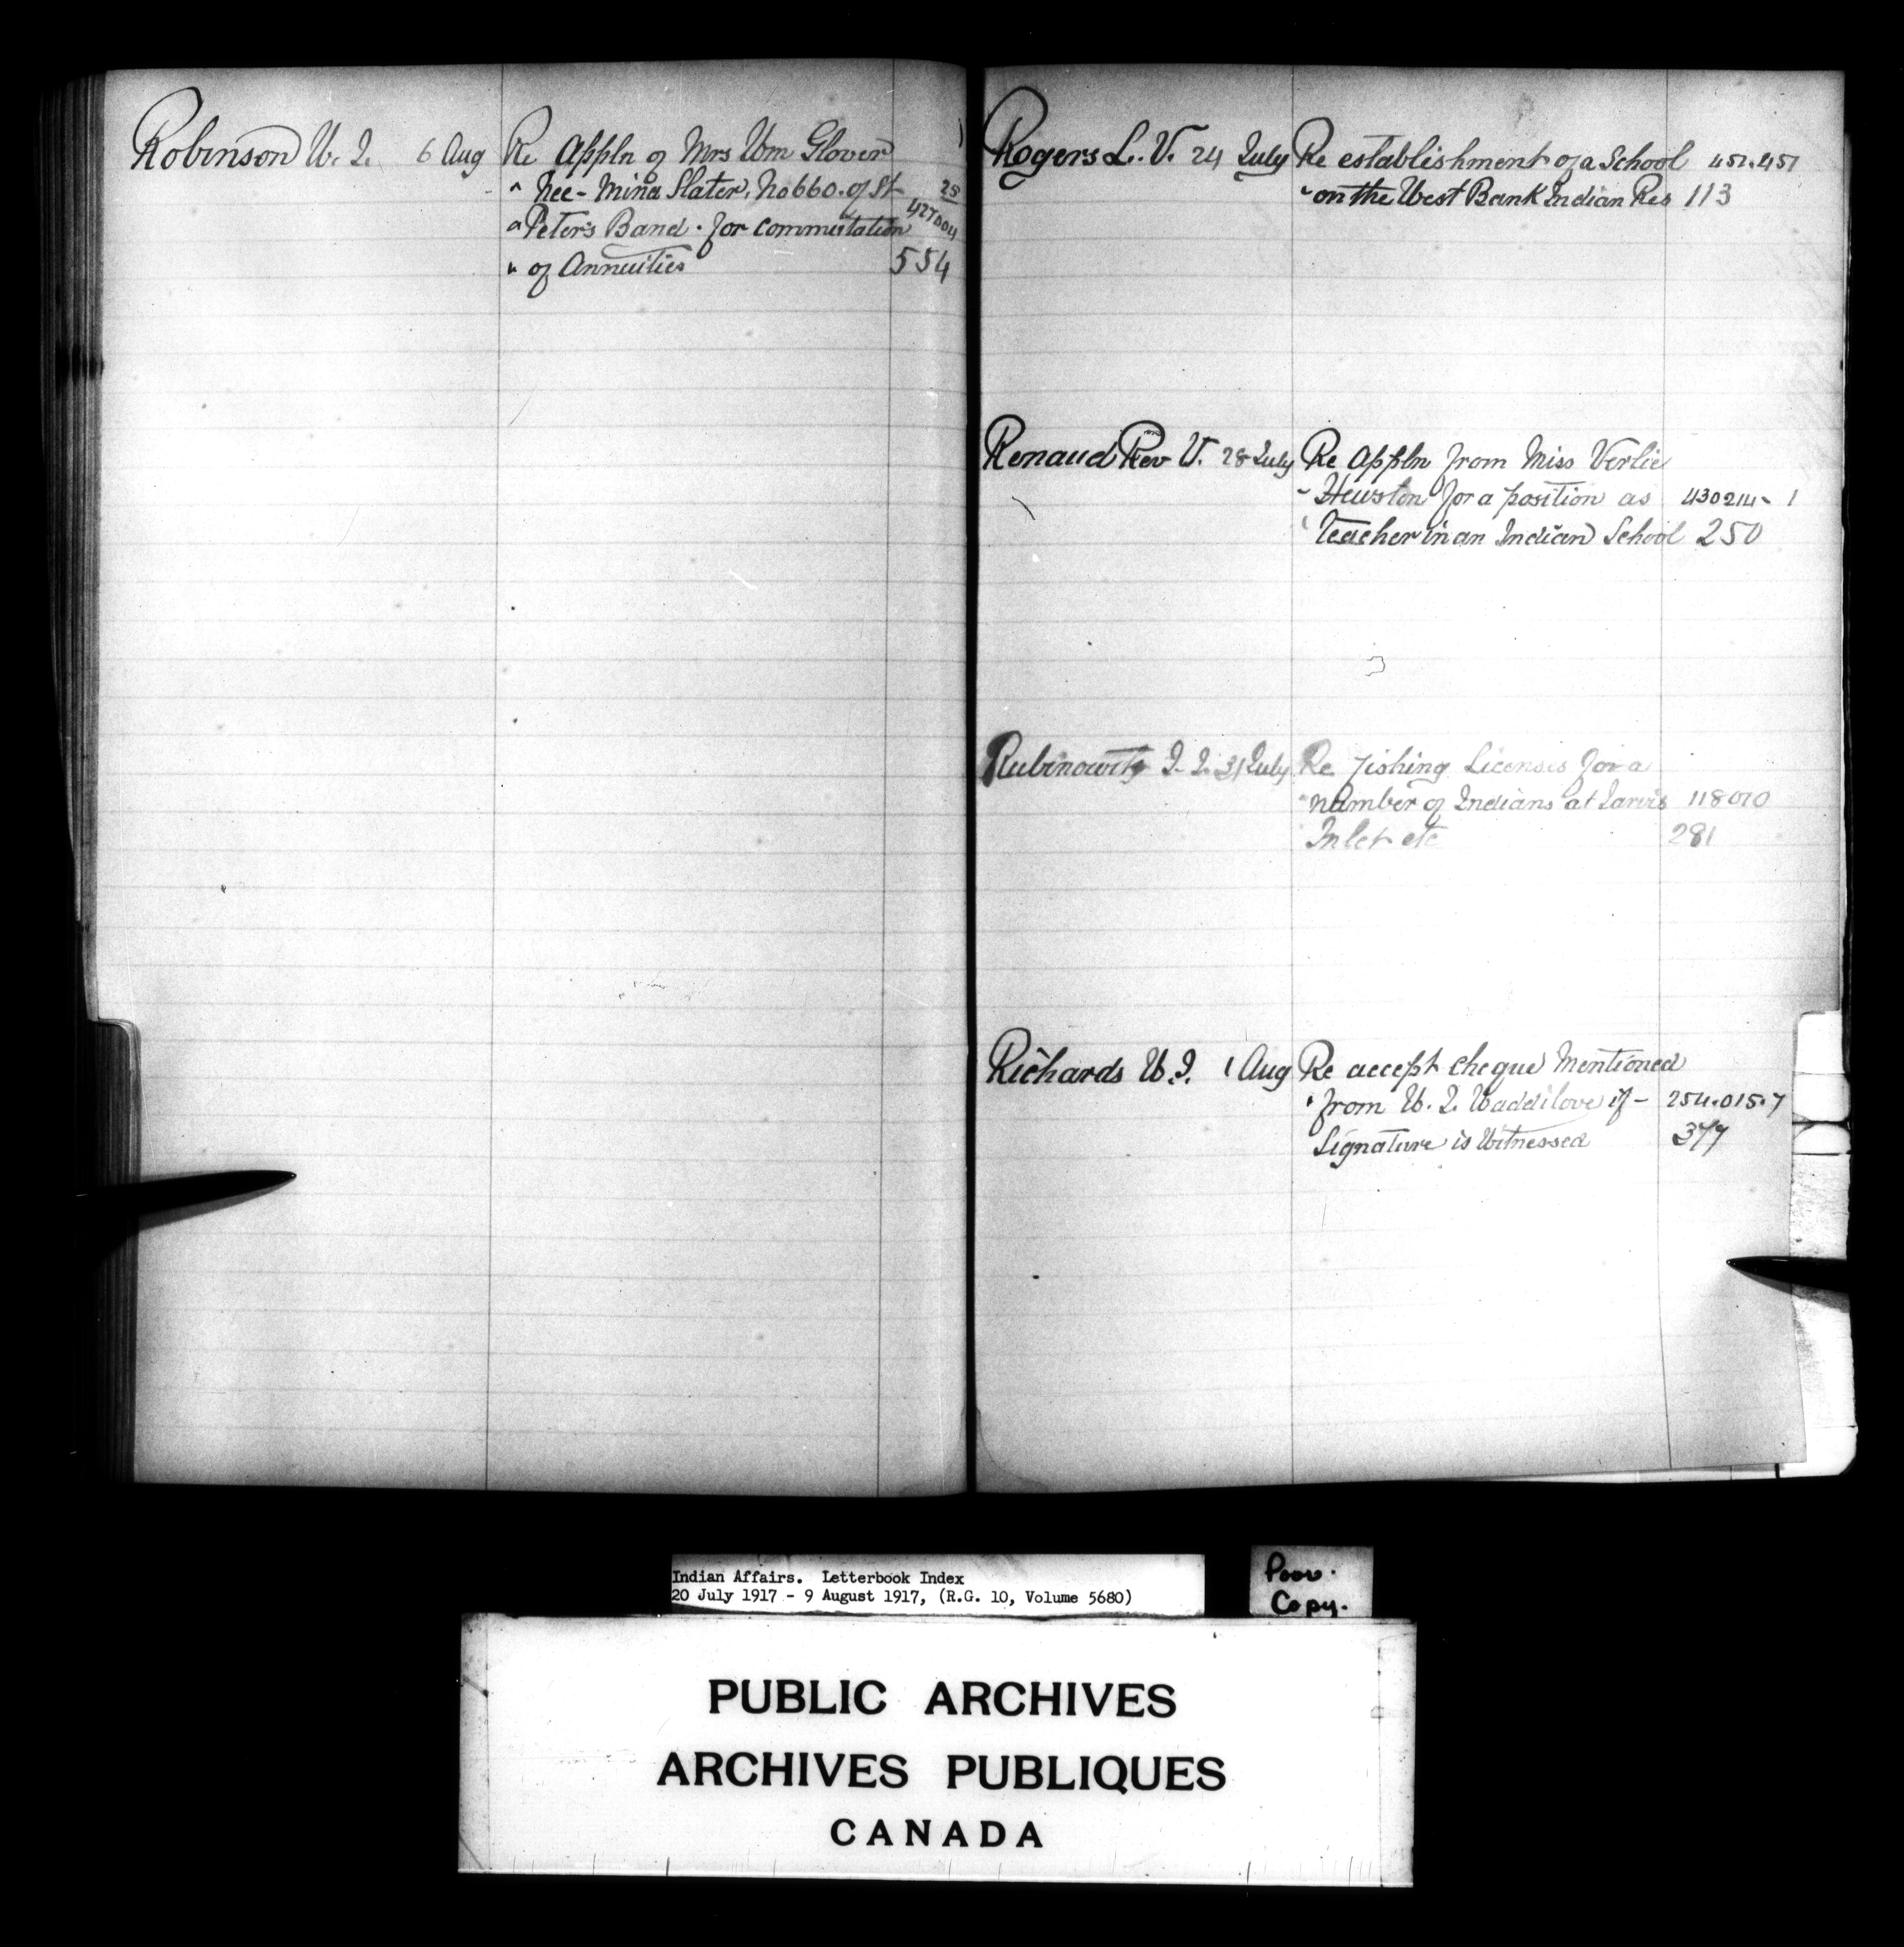 Robinson W. J. 6 Aug Re Appln of Mrs Wm Glover
" Nee - Mina Slater, No 660. of St 25
" Peter's Band. for commutation 427004
" of Annuities 554
Rogers L. V. 24 July Re establishment of a School 451.451
" on the West Bank Indian Res 113
Renaud Rev V. 28 July Re Appln from Miss Verlie
" Hewston for a position as 430214-1
" Teacher in an Indian School 250
Rubinowitz I. I. 31 July Re Fishing Licenses for a
" number of Indians at Jarvis 118010
Inlet etc 281
Richards W. J. 1 Aug Re accept cheque Mentioned
" from W. J. Waddilove if - 254.015.7
Signature is Witnessed 377
Indian Affairs. Letterbook Index
20 July 1917 - 9 August 1917, (R.G. 10, Volume 5680)
Poor.
Copy.
PUBLIC ARCHIVES
ARCHIVES PUBLIQUES
CANADA